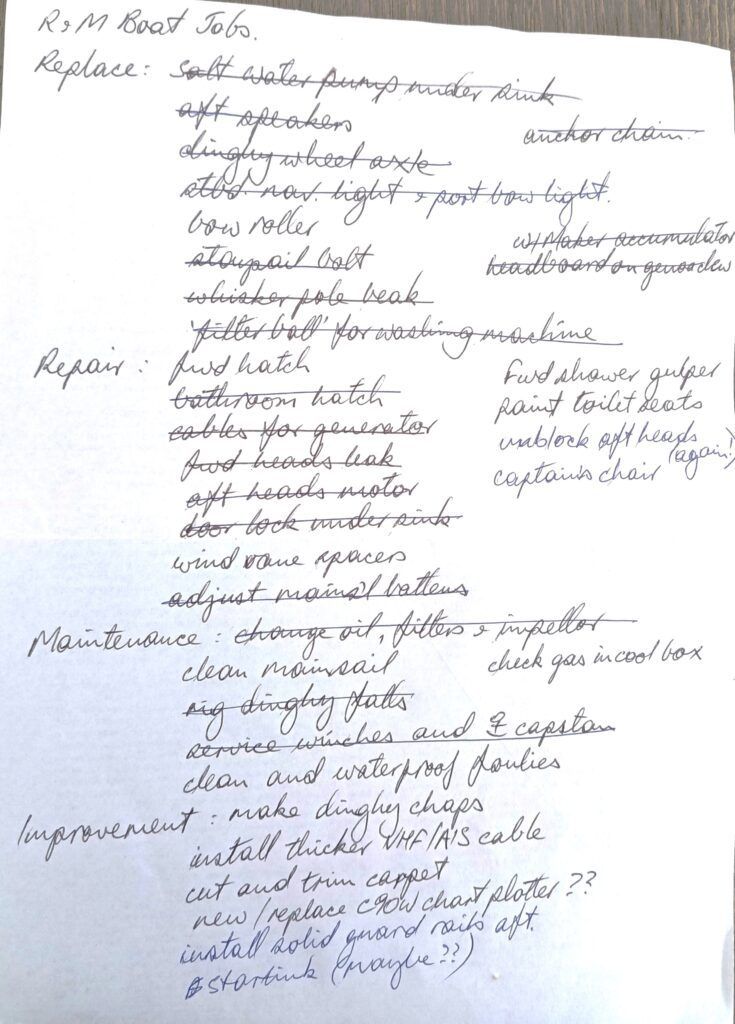 R & M Boat Jobs.
Replace: salt water pump under sink
aft speakers
anchor chain.
dinghy wheel axle
stbd. nav. light & port bow light.
bow roller
w/maker accumulator
sternrail bolt
headboard on genoa clew
whisker pole beak
'filter ball' for washing machine
Repair: fwd hatch
fwd shower gulper
bathroom hatch
paint toilet seats
cables for generator
unblock aft heads (again!)
fwd heads leak
captain's chair
aft heads motor
door lock under sink
wind vane spacers
adjust mains'l battens
Maintenance: change oil, filters & impellor
clean mainsail
check gas in cool box
rig dinghy falls
service winches and capstan
clean and waterproof foulies
Improvement: make dinghy chaps
install thicker VHF/AIS cable
cut and trim carpet
new/replace C90W chart plotter ??
install solid guard rails aft.
startink (maybe??)